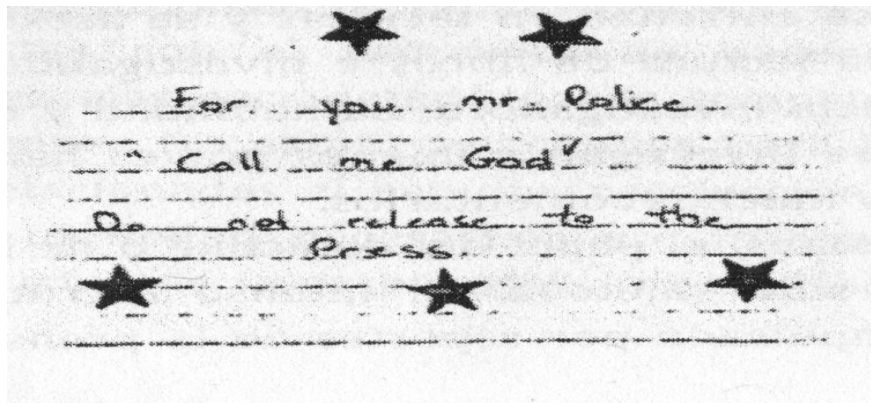 For you mr. Police
"Call me God"
Do not release to the
Press